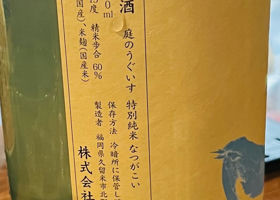 酒 庭のうぐいす 特別純米 なつがこい
保存方法 冷暗所に保管し
製造者 福岡県久留米市北
株式会社
0ml
5度 精米歩合 60%
国産)、米麹(国産米)